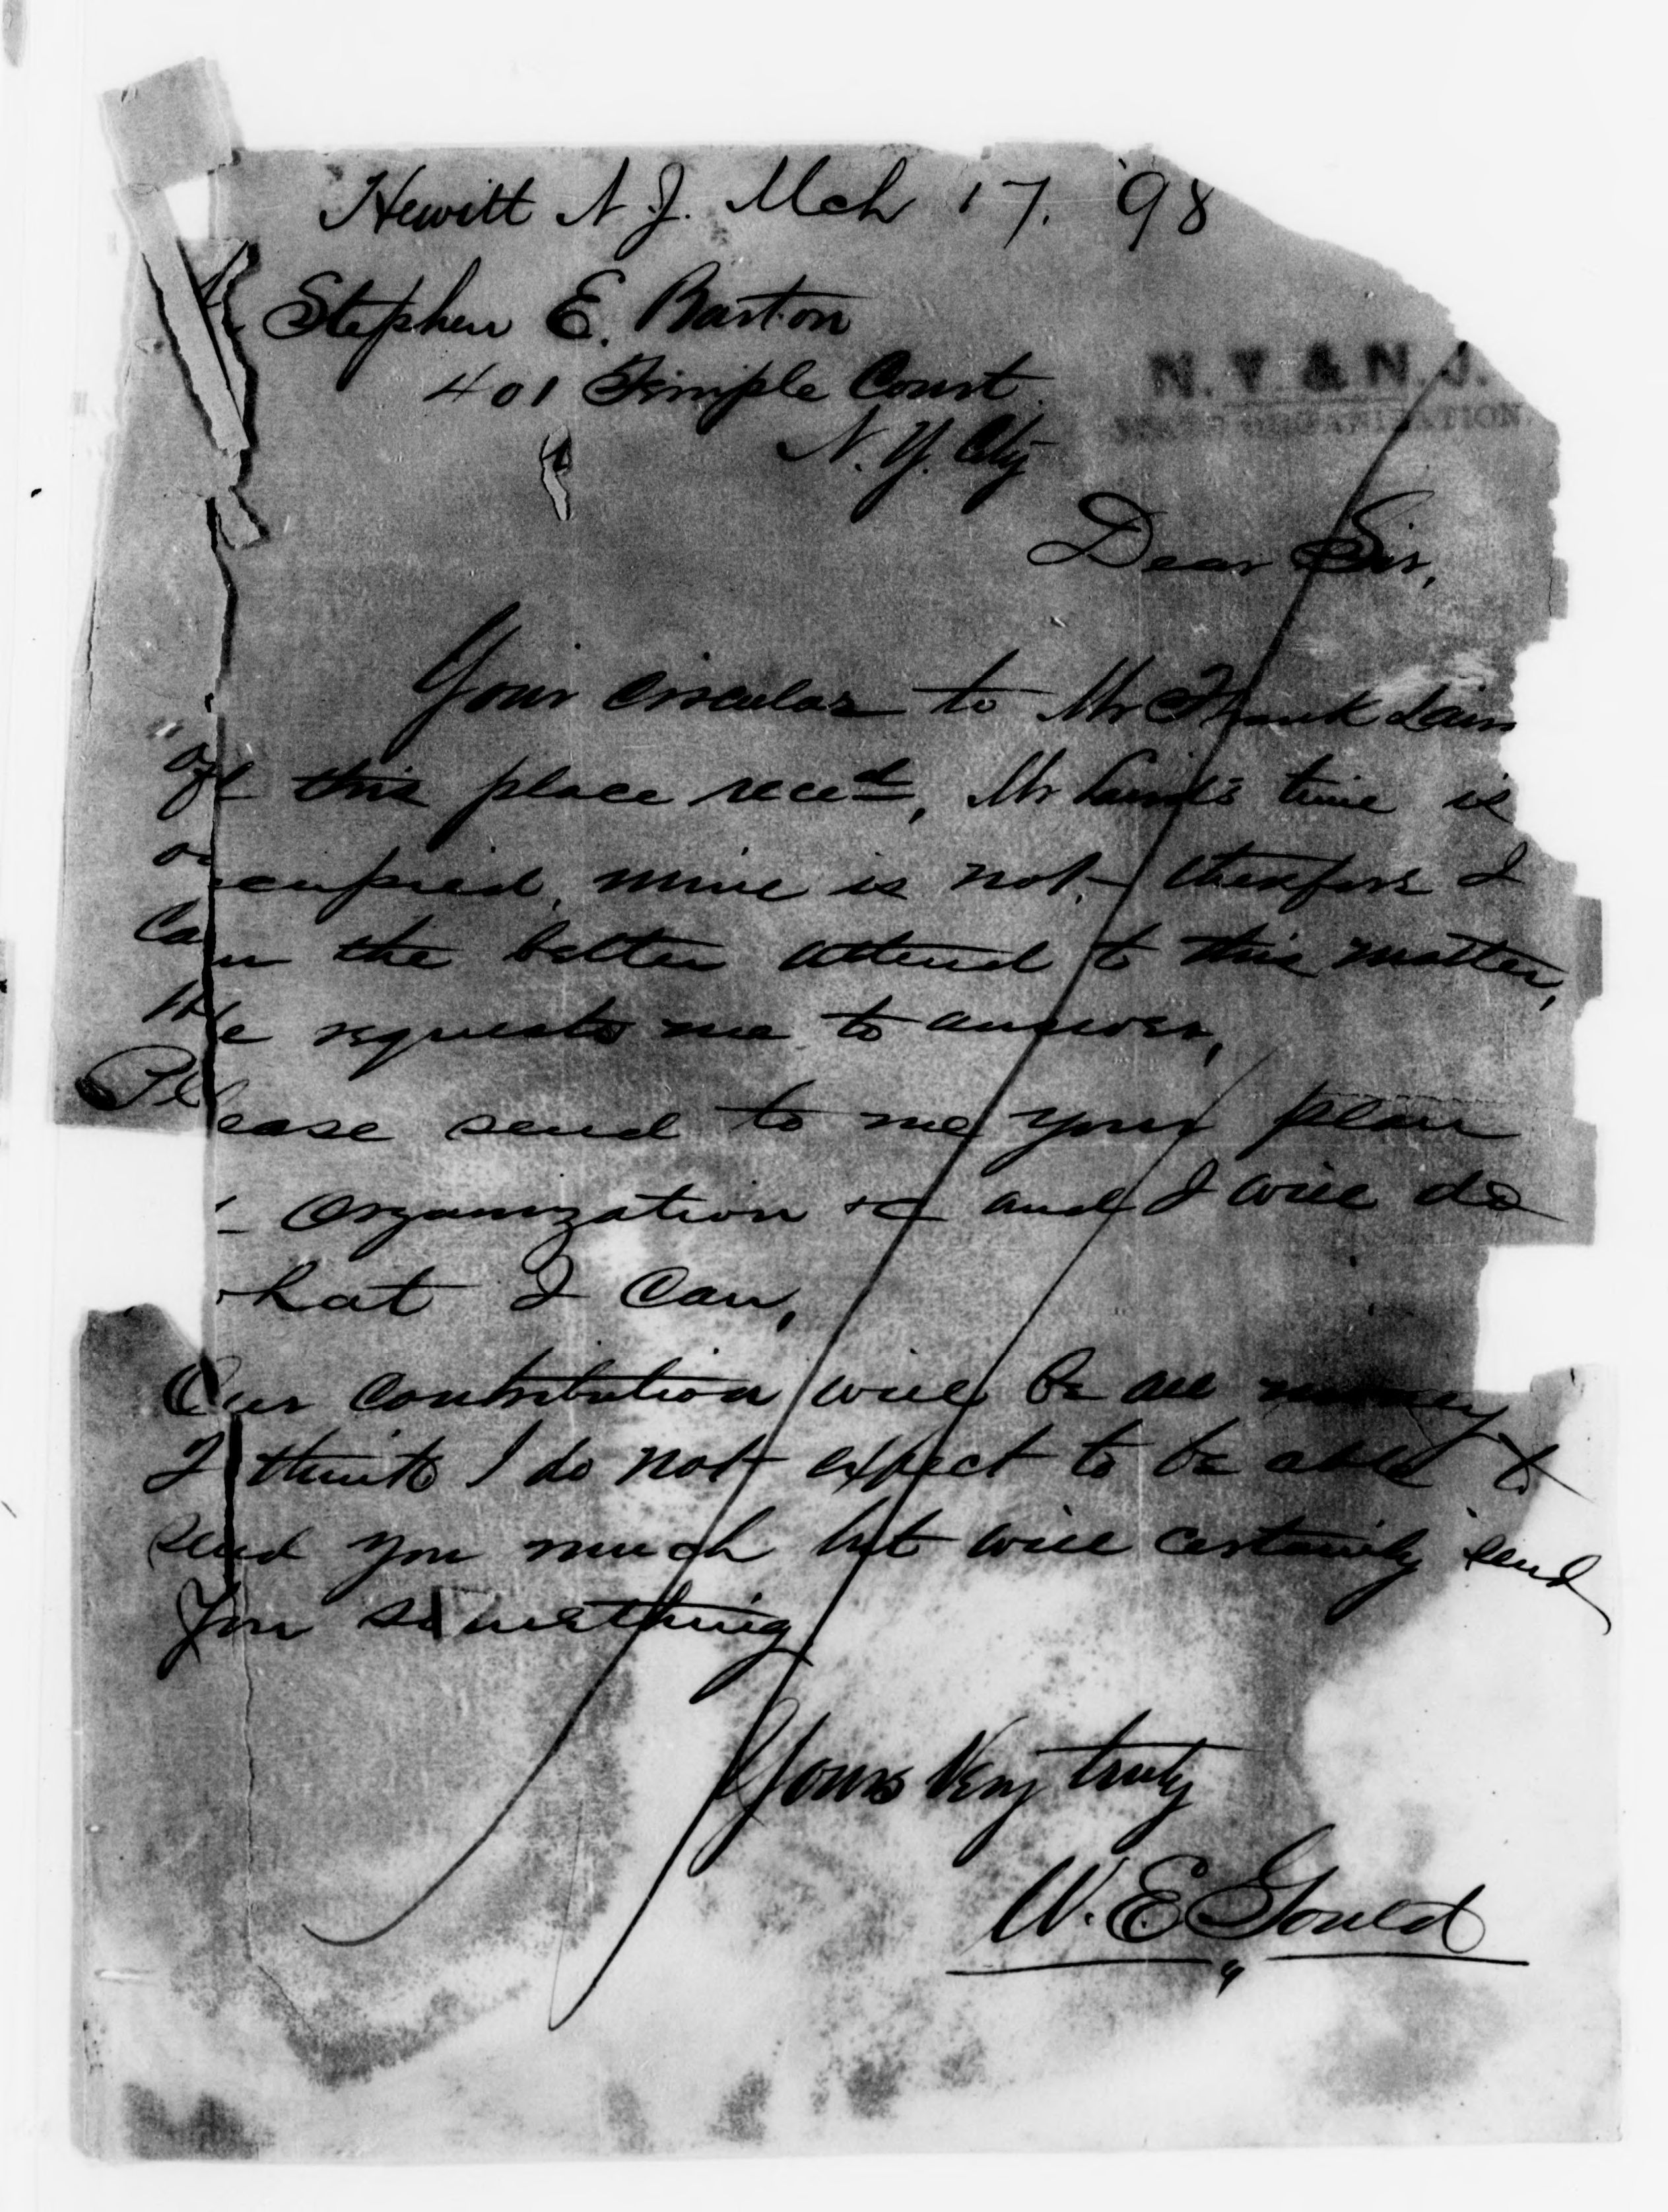 Hewitt N.J. Mch 17. '98
Stephen E. Barton
401 Temple Court.
N.Y. City
N. Y. & N. J.
STATE ORGANIZATION.
Dear Sir,
Your circular to Mr Frank
of this place reced, Mr time is
occupied, mine is not, therefore I
can the better attend to this matter,
He requests me to answer,
Please send to me your plan
organization &c and I will do
hat I can,
Our contribution will be all money
I think I do not expect to be able to
send you much but will certainly send
you something
Yours Very truly
W. E. Gould